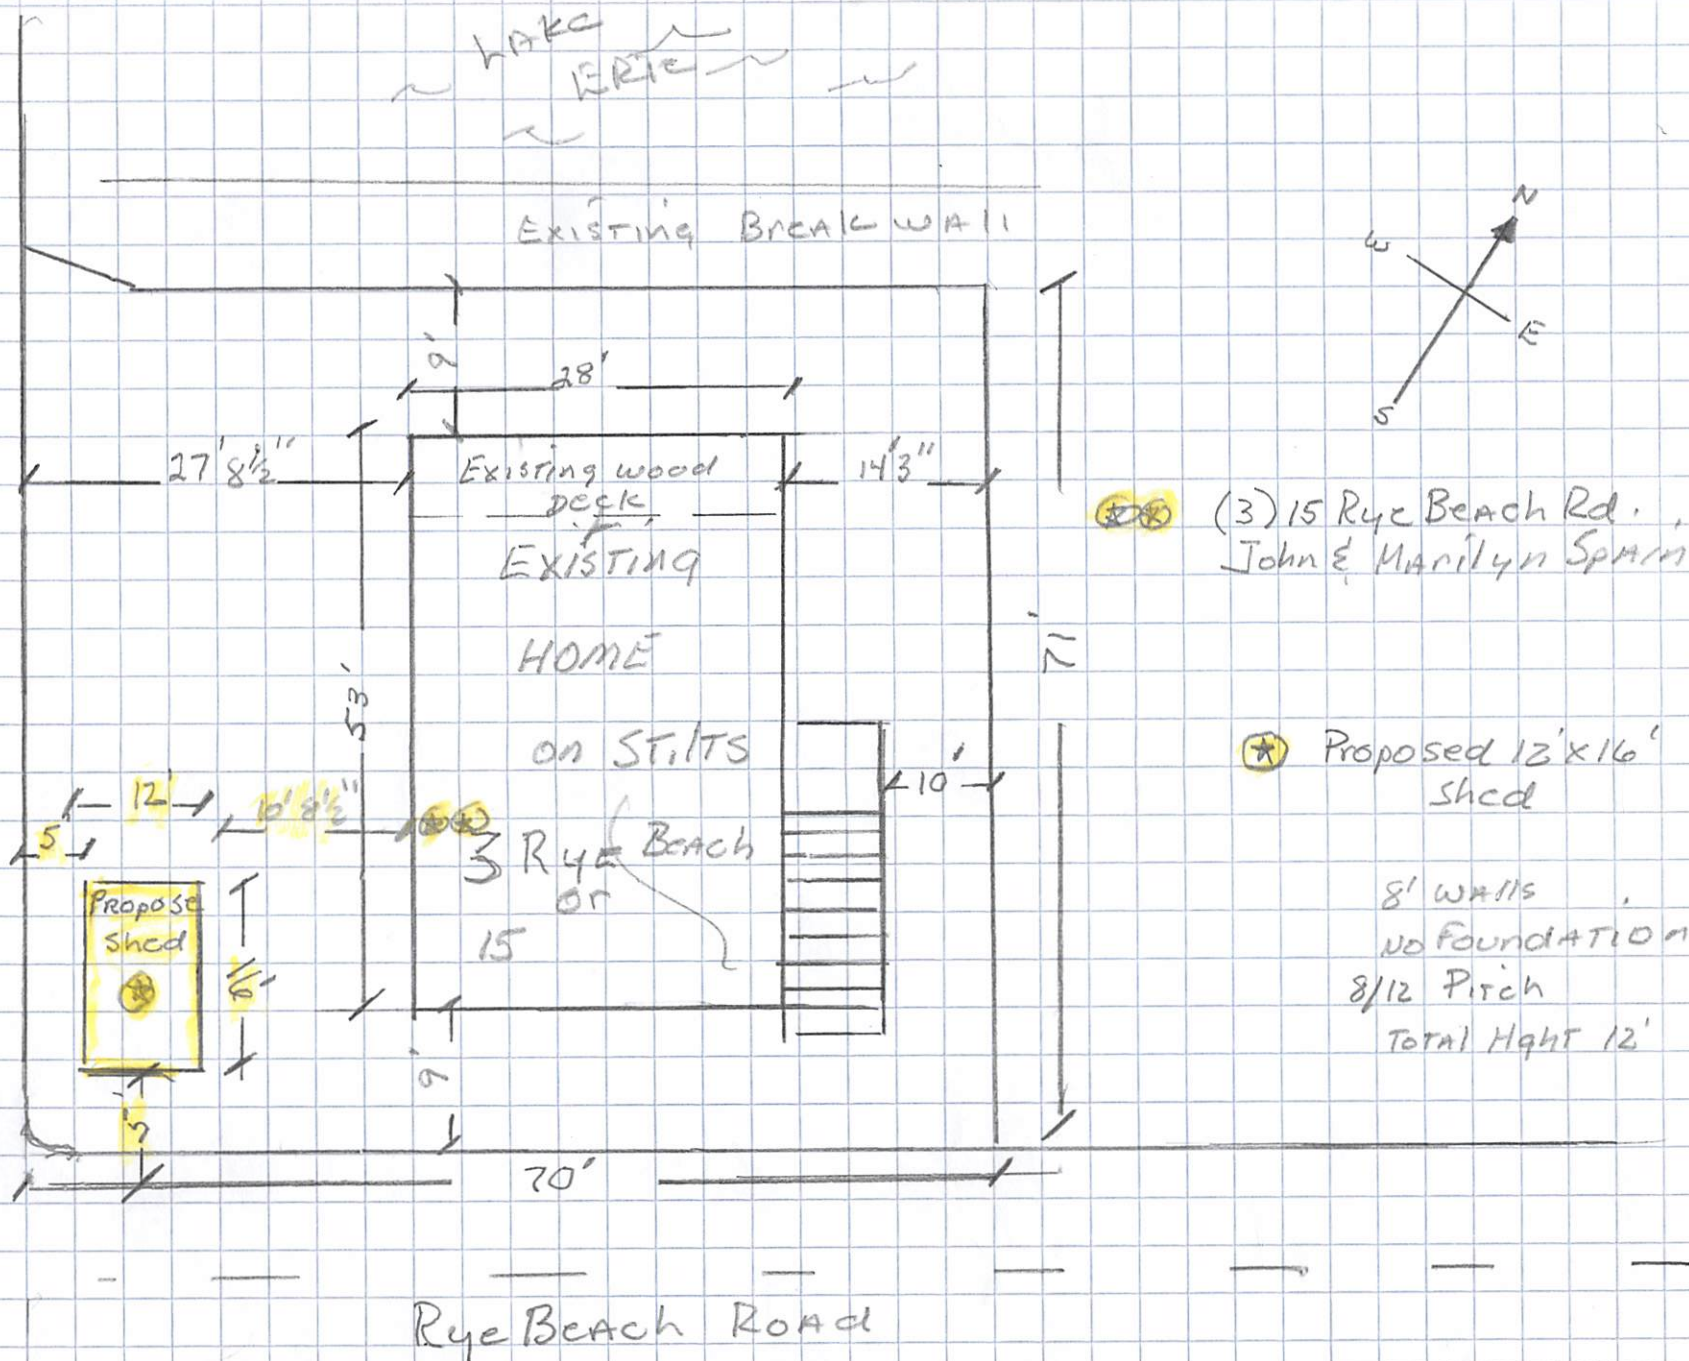 LAKE
ERIE
Existing BreakWAll
N
W
E
S
9'
28'
27' 8½"
Existing wood
Deck
14'3"
(3) 15 Rye Beach Rd.
John & Marilyn Spain
Existing
HOME
on STilTS
53'
71'
10'
Proposed 12'x16'
Shed
12'
10' 8½"
5'
3 Rye Beach
or
15
Propose
Shed
16'
8' WAlls
No FoundATion
8/12 Pitch
ToTAl Hght 12'
9'
5'
70'
Rye BeAch ROAd